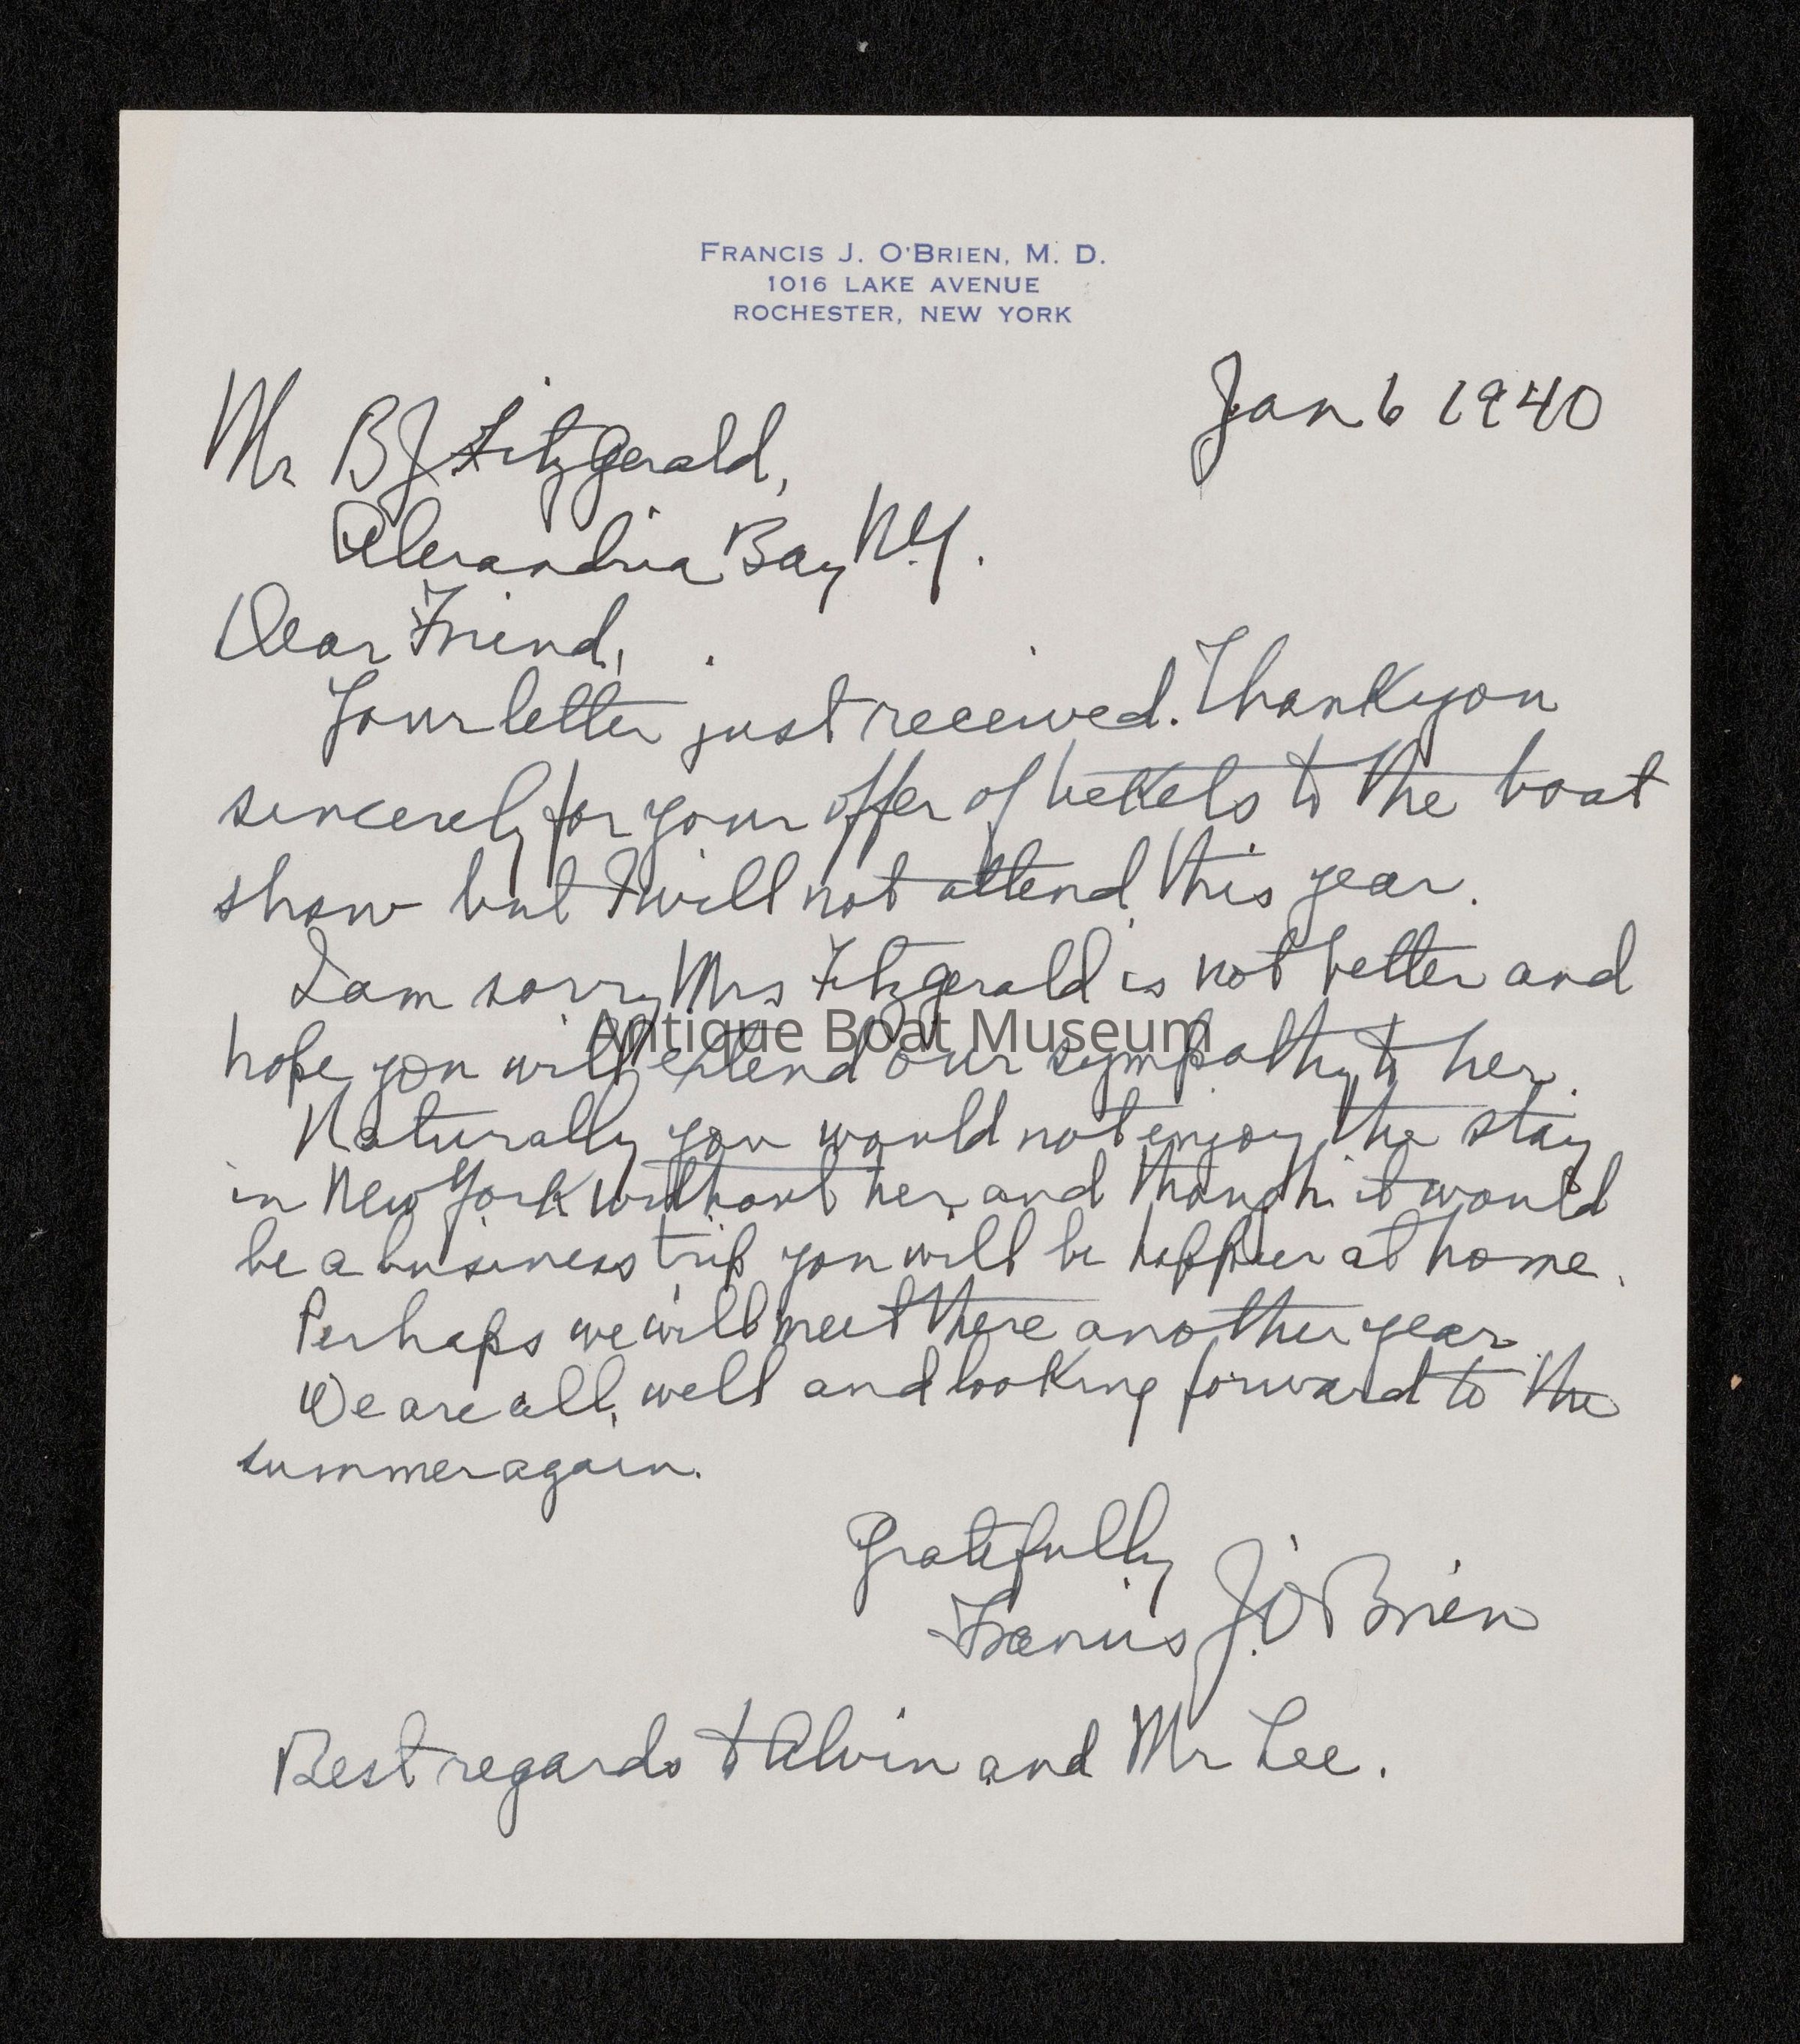 FRANCIS J. O'BRIEN, M. D.
1016 LAKE AVENUE
ROCHESTER, NEW YORK
Jan 6 1940
Mr B J Fitzgerald,
Alexandria Bay N.Y.
Dear Friend,
Your letter just received. Thank you
sincerely for your offer of tickets to the boat
show but I will not attend this year.
I am sorry Mrs Fitzgerald is not better and
Antique Boat Museum
hope you will extend our sympathy to her.
Naturally you would not enjoy the stay
in New York without her and though it would
be a business trip you will be happier at home.
Perhaps we will meet there another year.
We are all well and looking forward to the
summer again.
Gratefully
Francis J. O'Brien
Best regards to Alvin and Mr Lee.